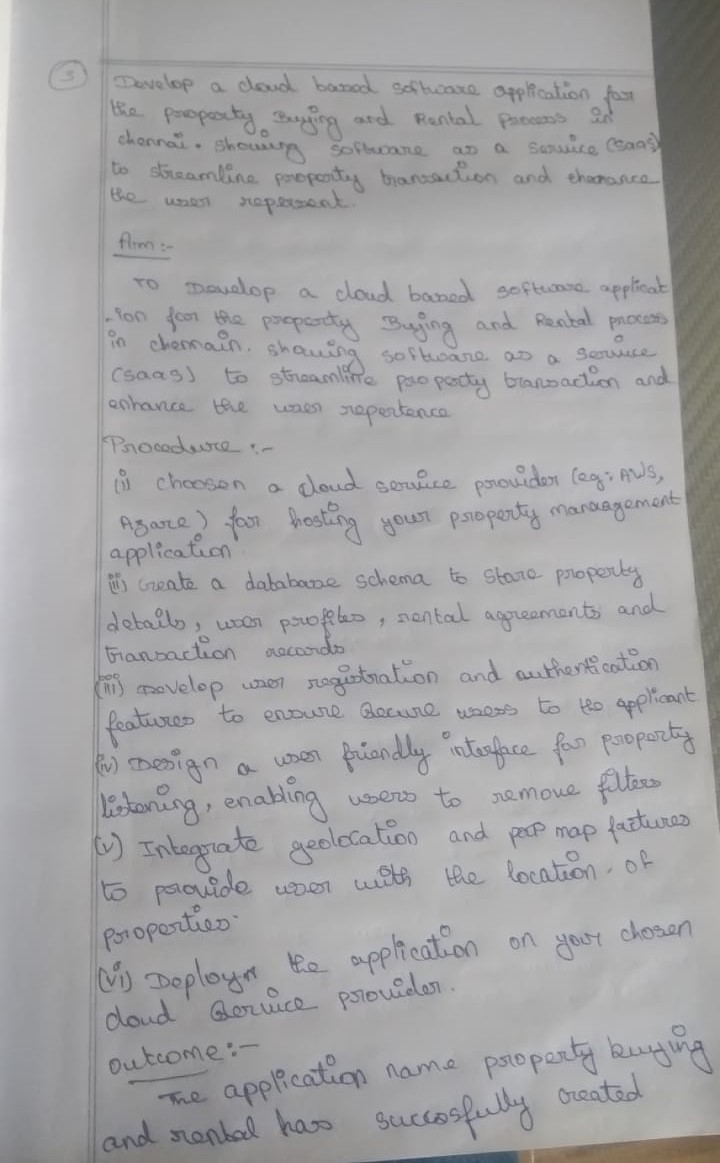 3
Develop a cloud based software application for
the property Buying and Rental Process in
chennai. showing software as a Service (saas)
to streamline property transaction and ehenance
the user repersent.
Aim:-
To Develop a cloud based software applicat
-ion for the property Buying and Rental process
in chennain. showing software as a service
(saas) to streamline property transaction and
enhance the user repertence
Procedure :-
(i) choosen a cloud service provider (eg: AWS,
Azare) for hosting your property management
application
(ii) Create a database schema to store property
details, user profiles, rental agreements and
transaction records
(iii) Develop user registration and authentication
features to ensure Secure users to the applicant
(iv) Design a user friendly interface for property
listening, enabling users to remove filters
(v) Integrate geolocation and map factures
to provide user with the location. of
properties.
(vi) Deploy the application on your chosen
cloud Service provider.
outcome:-
The application name property buying
and rental has succosfully created